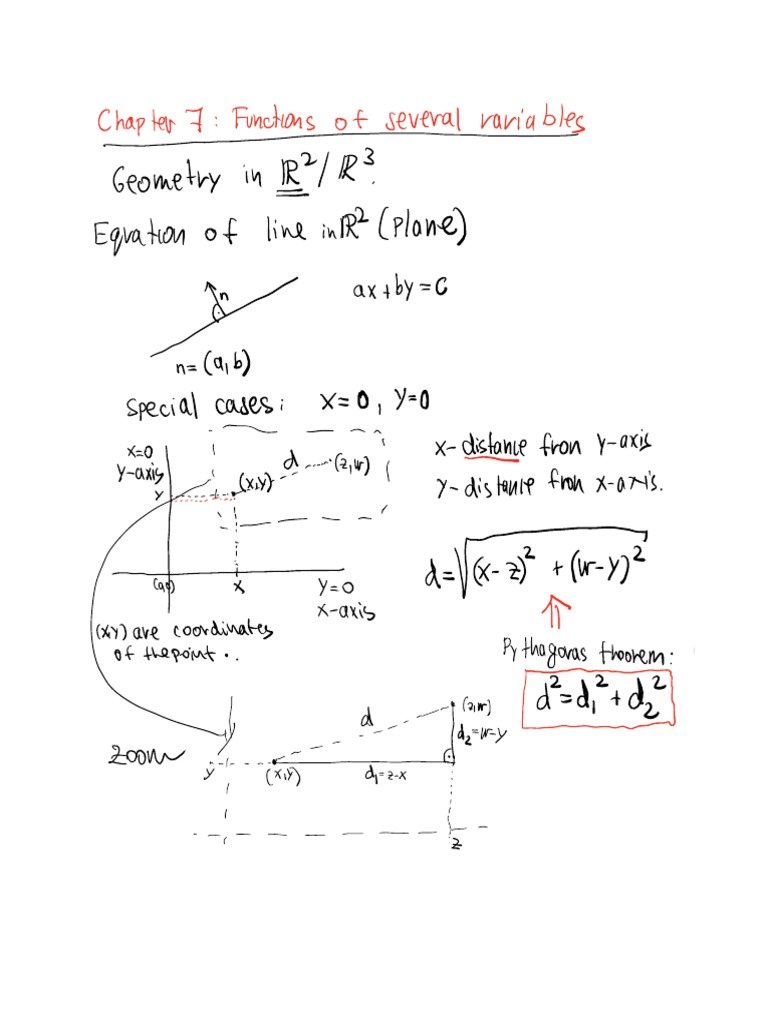 Chapter 7: Functions of several variables
Geometry in ℝ²/ℝ³.
Equation of line in ℝ² (plane)
n
ax+by=C
n=(a,b)
special cases: x=0, y=0
x=0
y-axis
y
(x,y)
d
(z,w)
x-distance from y-axis
y-distance from x-axis.
(0,0)
x
y=0
x-axis
d=√((x-z)² + (w-y)²)
(x,y) are coordinates
of the point •.
Pythagoras theorem:
d²=d₁²+d₂²
zoom
y
(x,y)
d
(z,w)
d₂=w-y
d₁=z-x
z